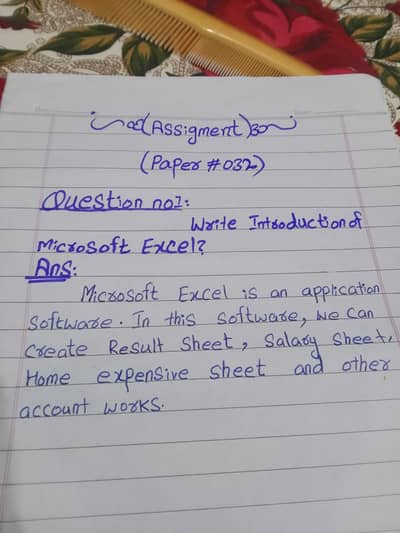 (Assigment)
(Paper #032)
Question no1:
Write Introduction of
Microsoft Excel?
Ans:
Microsoft Excel is an application
Software. In this software, we can
Create Result Sheet, Salary Sheet,
Home expensive sheet and other
account works.